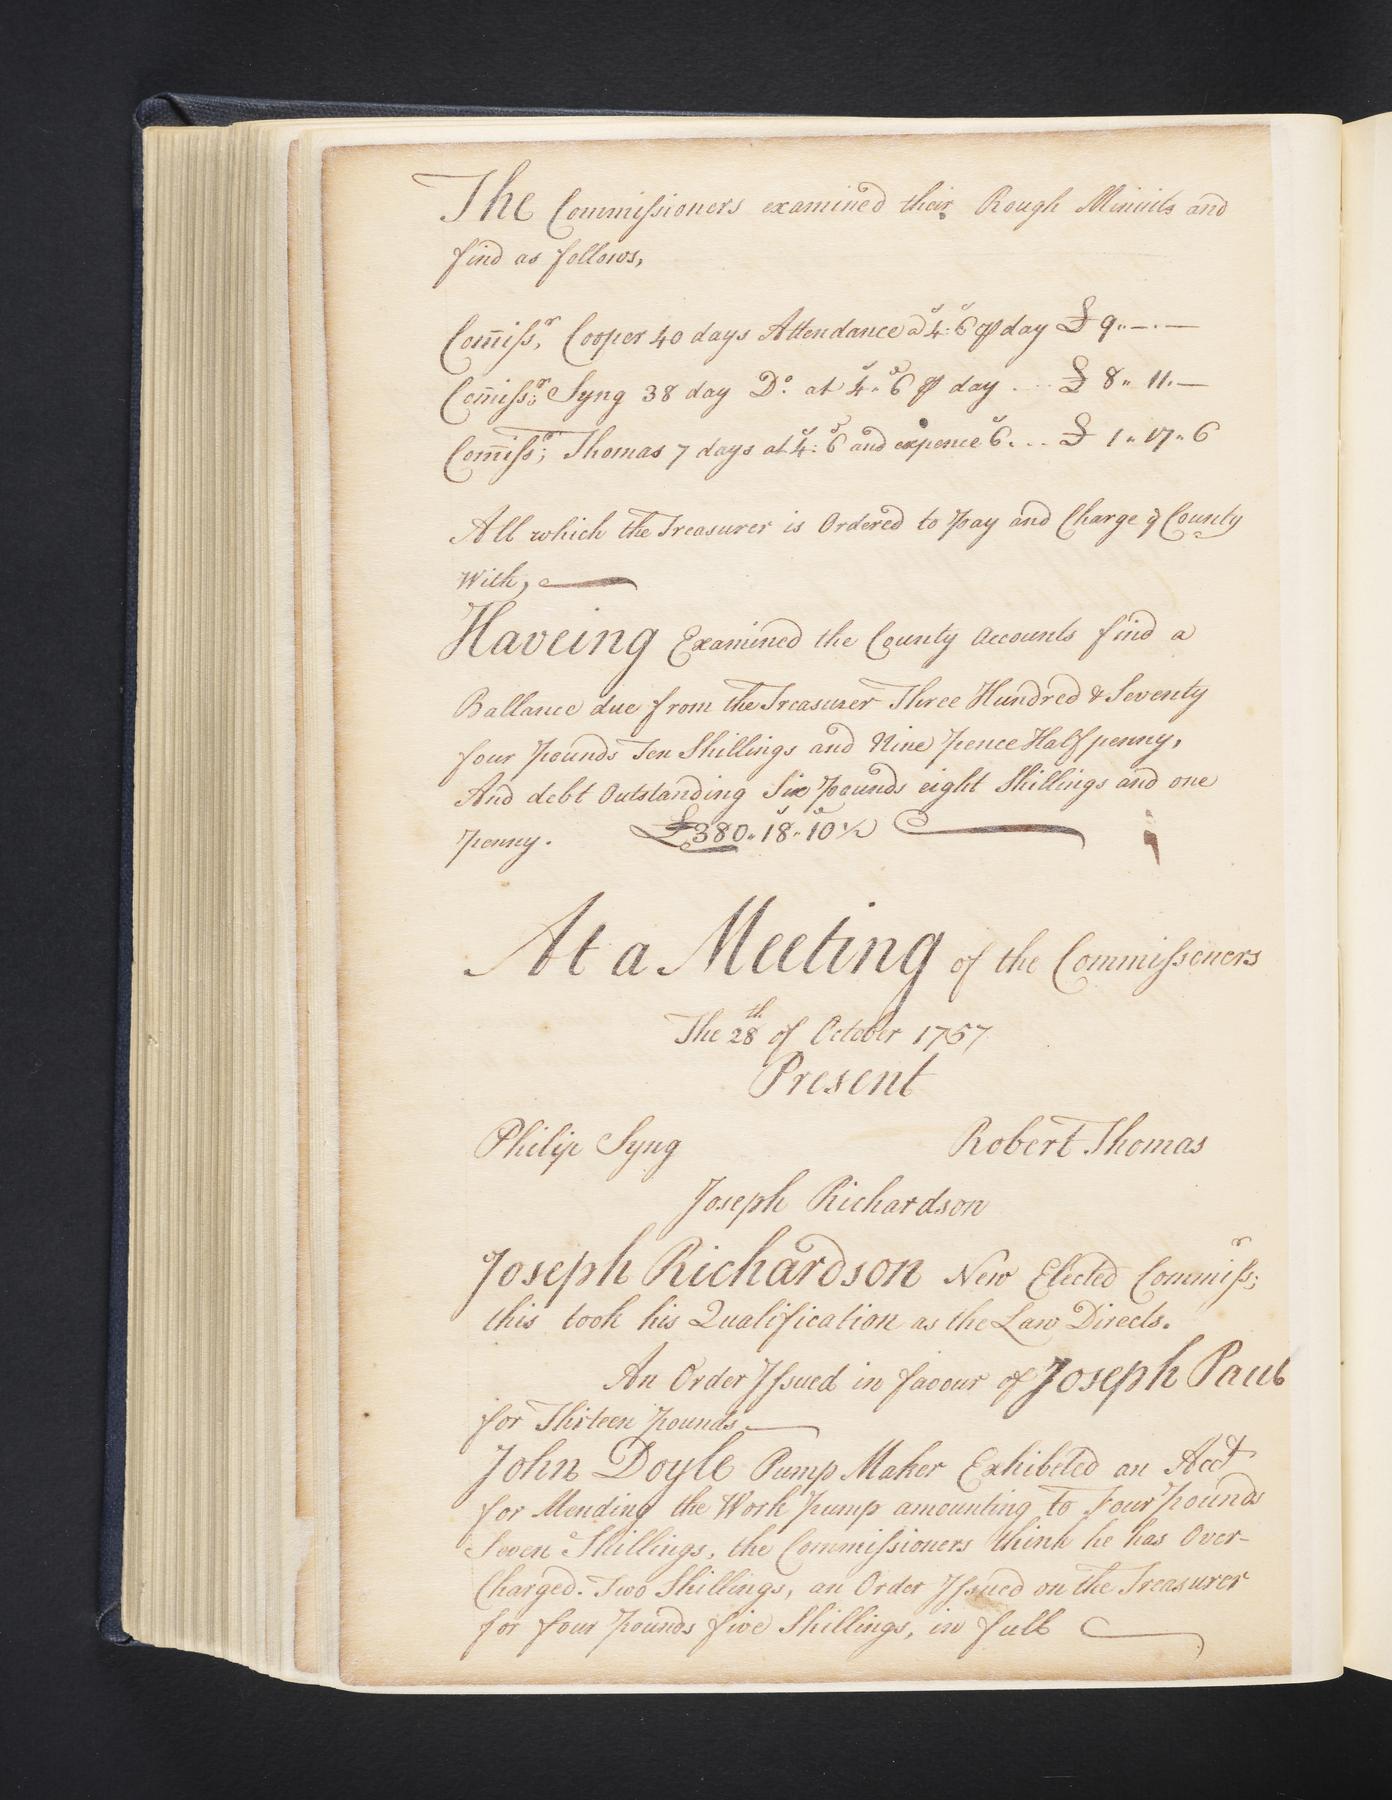 The Commissioners examined their Rough Minuits and
find as follows,
Com̅issʳ, Cooper 40 days Attendance a 4ˢ:6ᵈ ℘ day £ 9"—.—
Com̅issʳ; Syng 38 day Dº. at 4ˢ"6ᵈ ℘ day ... £ 8" 11.—
Com̅issʳ; Thomas 7 days at 4ˢ:6ᵈ and expence 6ˢ... £ 1"17"6
All which the Treasurer is Ordered to pay and Charge ye County
With,
Haveing Examined the County Accounts find a
Ballance due from the Treasurer Three Hundred & Seventy
four pounds Ten Shillings and Nine pence Halfpenny,
And debt Outstanding Six pounds eight Shillings and one
penny. £380"18ˢ"10ᵈ½
At a Meeting of the Commisseners
The 28th of October 1757
Present
Philip Syng Robert Thomas
Joseph Richardson
Joseph Richardson New Elected Commissʳ;
this took his Qualification as the Law Directs.
An Order Issued in favour of Joseph Paul
for Thirteen pounds
John Doyle Pump Maker Exhibeted an Acct
for Mending the Work pump amounting to Four pounds
Seven Shillings, the Commissioners think he has Over-
Charged. Two Shillings, an Order Issued on the Treasurer
for four pounds five Shillings, in full